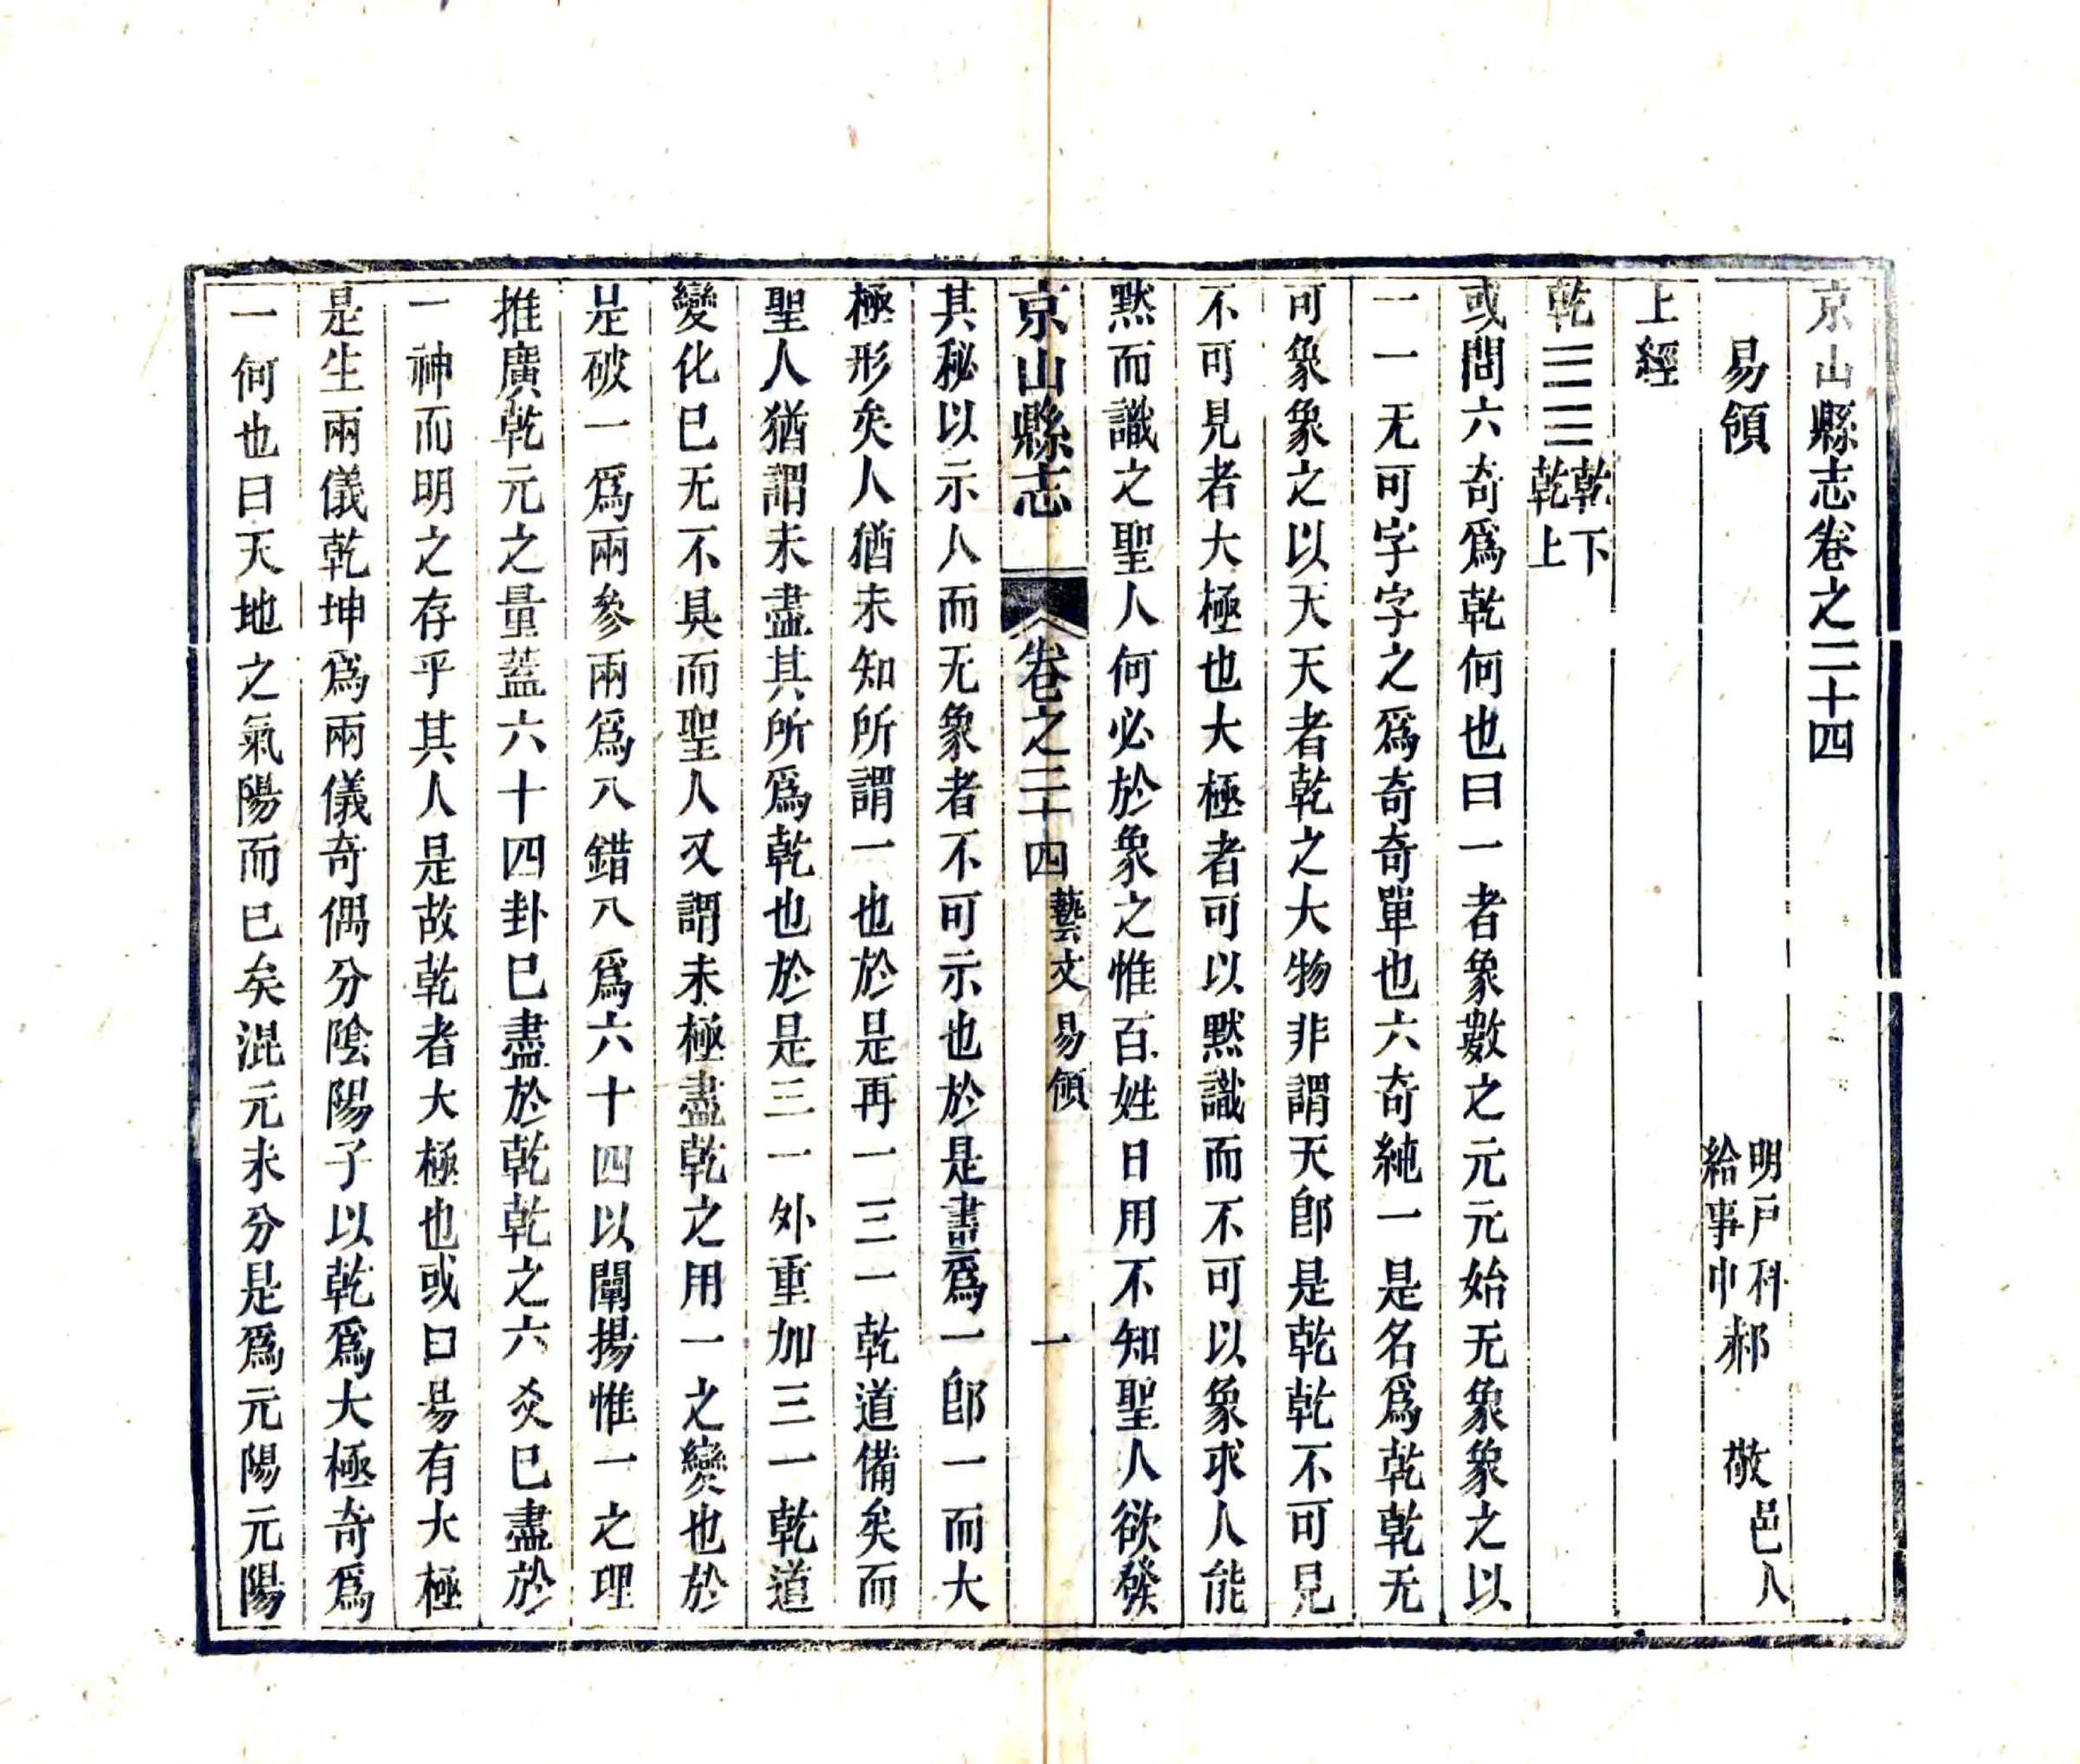 京山縣志卷之二十四
易領
明戸科給事中郝敬邑人
上經
乾☰☰乾下乾上
或問六奇爲乾何也曰一者象數之元元始无象象之以
一一无可字字之爲奇奇單也六奇純一是名爲乾乾无
可象象之以天天者乾之大物非謂天卽是乾乾不可見
不可見者大極也大極者可以默識而不可以象求人能
默而識之聖人何必於象之惟百姓日用不知聖人欲發
京山縣志 卷之二十四 藝文 易領 一
其秘以示人而无象者不可示也於是畫爲一卽一而大
極形矣人猶未知所謂一也於是再一三一乾道備矣而
聖人猶謂未盡其所爲乾也於是三一外重加三一乾道
變化已无不具而聖人又謂未極盡乾之用一之變也於
是破一爲兩參兩爲八錯八爲六十四以闡揚惟一之理
推廣乾元之量蓋六十四卦已盡於乾乾之六爻已盡於
一神而明之存乎其人是故乾者大極也或曰易有大極
是生兩儀乾坤爲兩儀奇偶分陰陽子以乾爲大極奇爲
一何也曰天地之氣陽而已矣混元未分是爲元陽元陽